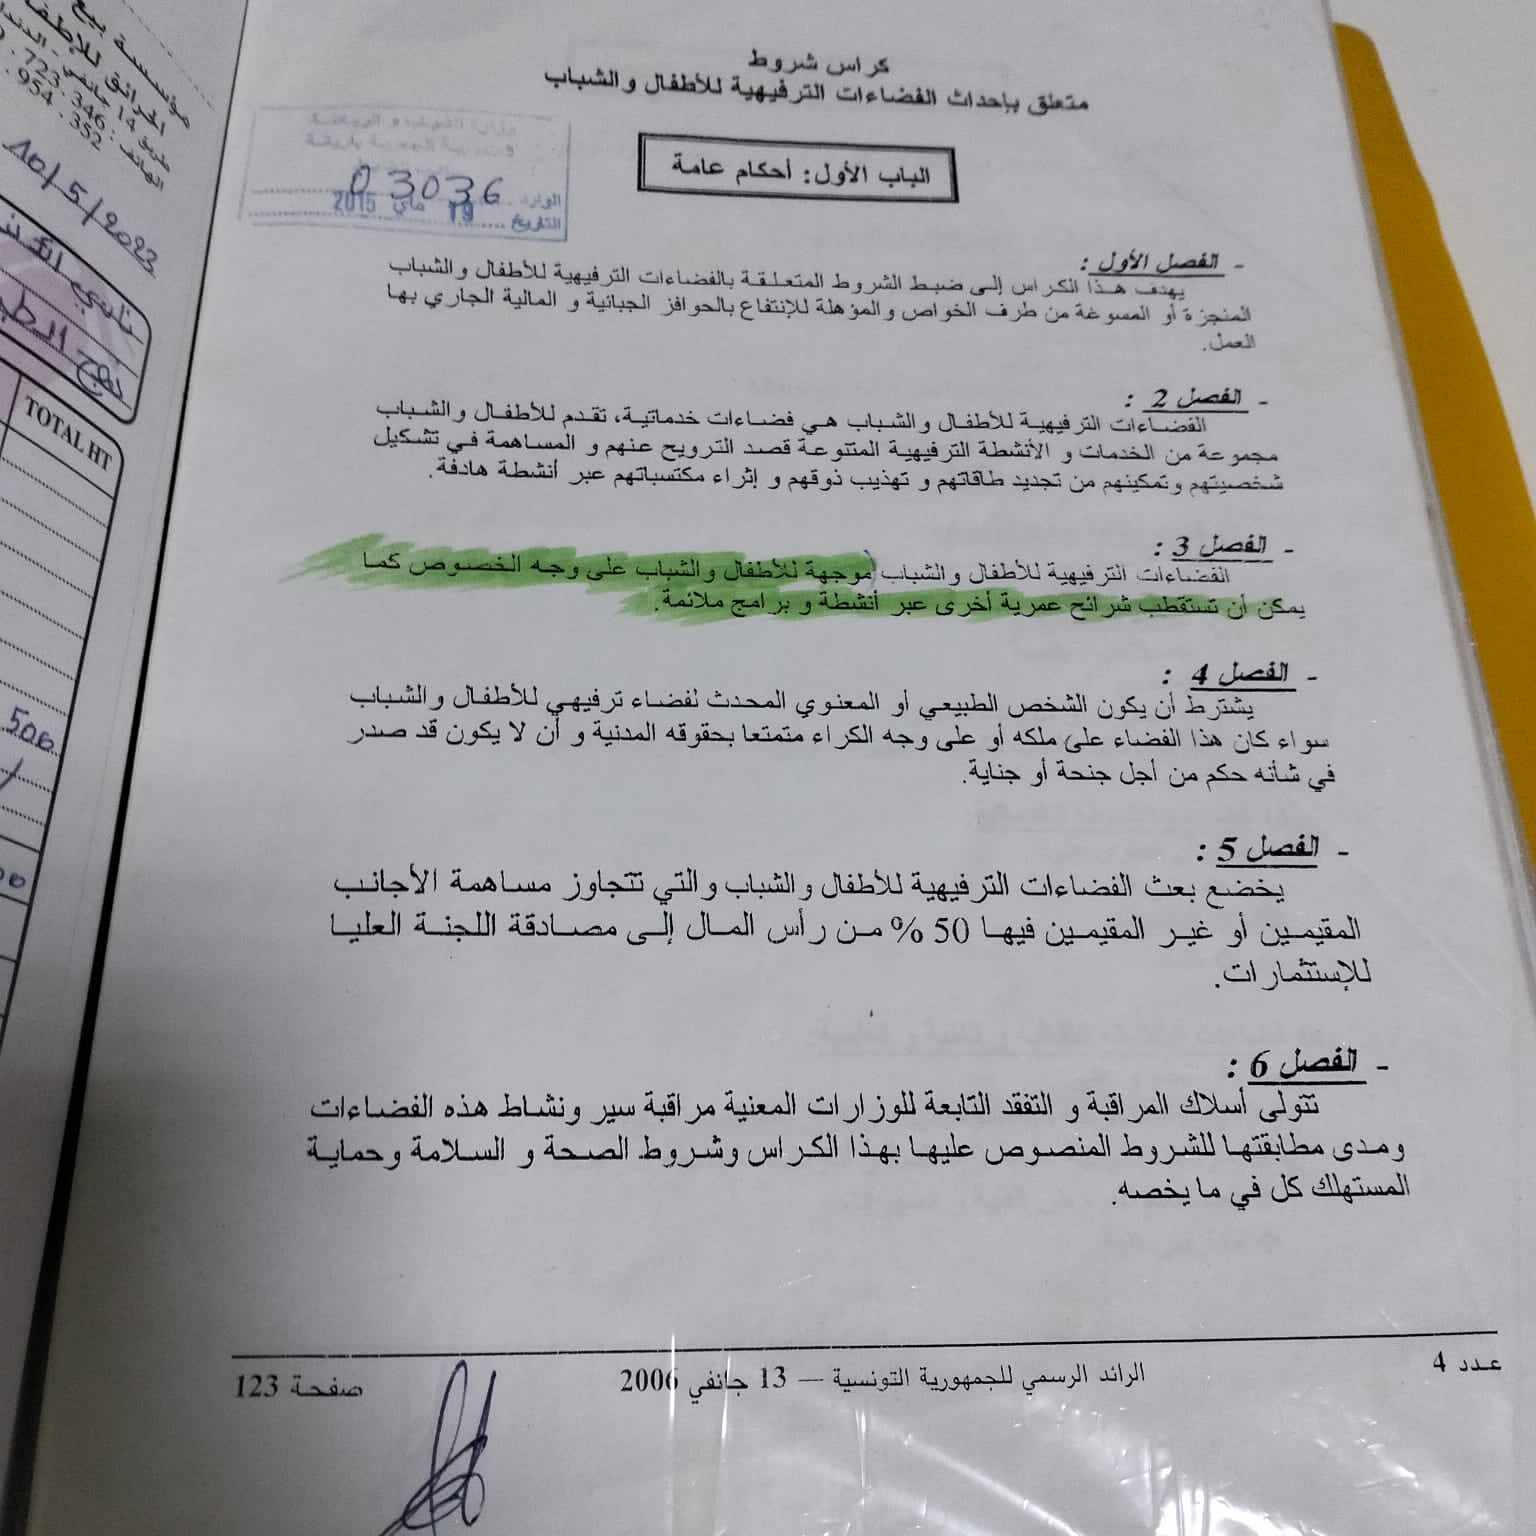 كراس شروط
متعلق بإحداث الفضاءات الترفيهية للأطفال والشباب
الوارد 03036
التاريخ 19 ماي 2015
الباب الأول: أحكام عامة
- الفصل الأول :
يهدف هذا الكراس إلى ضبط الشروط المتعلقة بالفضاءات الترفيهية للأطفال والشباب
المنجزة أو المسوغة من طرف الخواص والمؤهلة للإنتفاع بالحوافز الجبائية و المالية الجاري بها
العمل.
- الفصل 2 :
الفضاءات الترفيهية للأطفال والشباب هي فضاءات خدماتية، تقدم للأطفال والشباب
مجموعة من الخدمات و الأنشطة الترفيهية المتنوعة قصد الترويح عنهم و المساهمة في تشكيل
شخصيتهم وتمكينهم من تجديد طاقاتهم و تهذيب ذوقهم و إثراء مكتسباتهم عبر أنشطة هادفة.
- الفصل 3 :
الفضاءات الترفيهية للأطفال والشباب موجهة للأطفال والشباب على وجه الخصوص كما
يمكن أن تستقطب شرائح عمرية أخرى عبر أنشطة و برامج ملائمة.
- الفصل 4 :
يشترط أن يكون الشخص الطبيعي أو المعنوي المحدث لفضاء ترفيهي للأطفال والشباب
سواء كان هذا الفضاء على ملكه أو على وجه الكراء متمتعا بحقوقه المدنية و أن لا يكون قد صدر
في شأنه حكم من أجل جنحة أو جناية.
- الفصل 5 :
يخضع بعث الفضاءات الترفيهية للأطفال والشباب والتي تتجاوز مساهمة الأجانب
المقيمين أو غير المقيمين فيها 50 % من رأس المال إلى مصادقة اللجنة العليا
للإستثمارات.
- الفصل 6 :
تتولى أسلاك المراقبة و التفقد التابعة للوزارات المعنية مراقبة سير ونشاط هذه الفضاءات
ومدى مطابقتها للشروط المنصوص عليها بهذا الكراس وشروط الصحة و السلامة وحماية
المستهلك كل في ما يخصه.
عدد 4
الرائد الرسمي للجمهورية التونسية — 13 جانفي 2006
صفحة 123
مؤسسة بيع
طريق 14 جانفي
الهاتف : 723.346
954.352
10/5/2023
TOTAL HT
506